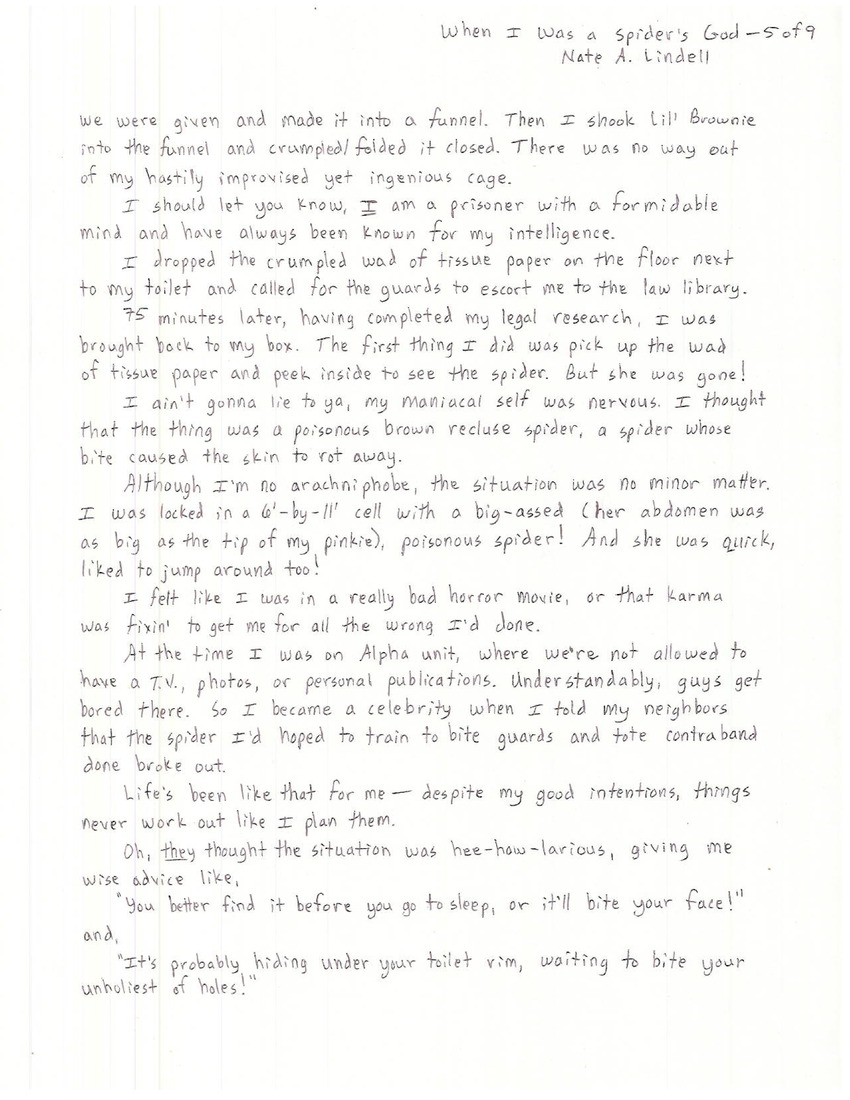 When I Was a Spider's God – 5 of 9
Nate A. Lindell
we were given and made it into a funnel. Then I shook Lil' Brownie
into the funnel and crumpled/folded it closed. There was no way out
of my hastily improvised yet ingenious cage.
I should let you know, I am a prisoner with a formidable
mind and have always been known for my intelligence.
I dropped the crumpled wad of tissue paper on the floor next
to my toilet and called for the guards to escort me to the law library.
75 minutes later, having completed my legal research, I was
brought back to my box. The first thing I did was pick up the wad
of tissue paper and peek inside to see the spider. But she was gone!
I ain't gonna lie to ya, my maniacal self was nervous. I thought
that the thing was a poisonous brown recluse spider, a spider whose
bite caused the skin to rot away.
Although I'm no arachniphobe, the situation was no minor matter.
I was locked in a 6'-by-11' cell with a big-assed (her abdomen was
as big as the tip of my pinkie), poisonous spider! And she was quick,
liked to jump around too!
I felt like I was in a really bad horror movie, or that karma
was fixin' to get me for all the wrong I'd done.
At the time I was on Alpha unit, where we're not allowed to
have a T.V., photos, or personal publications. Understandably, guys get
bored there. So I became a celebrity when I told my neighbors
that the spider I'd hoped to train to bite guards and tote contraband
done broke out.
Life's been like that for me — despite my good intentions, things
never work out like I plan them.
Oh, they thought the situation was hee-how-larious, giving me
wise advice like,
"You better find it before you go to sleep, or it'll bite your face!"
and,
"It's probably hiding under your toilet rim, waiting to bite your
unholiest of holes!"